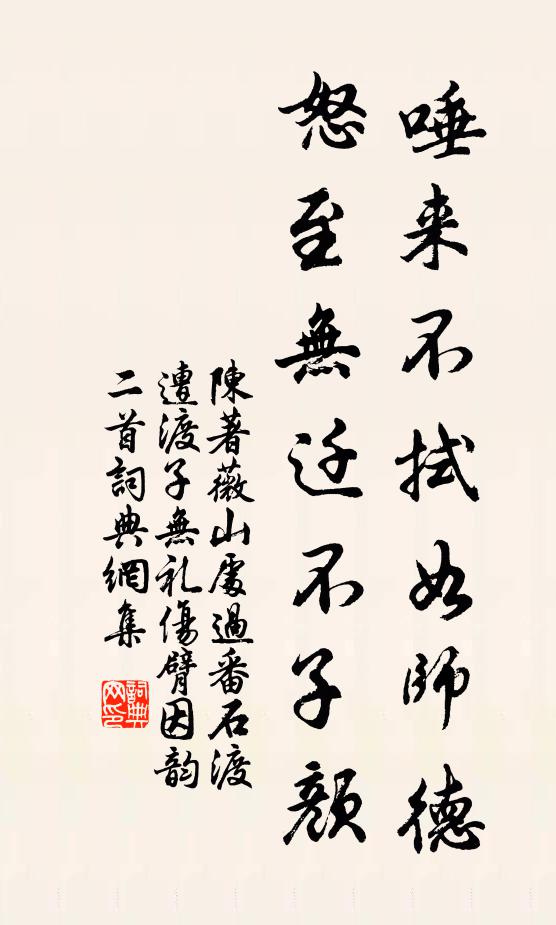 唾来不拭如師德
怒至無迁不子顔
陳著薇山處過番石渡
遭渡子無礼傷臂因韵
二首詞典網集
詞典
网印